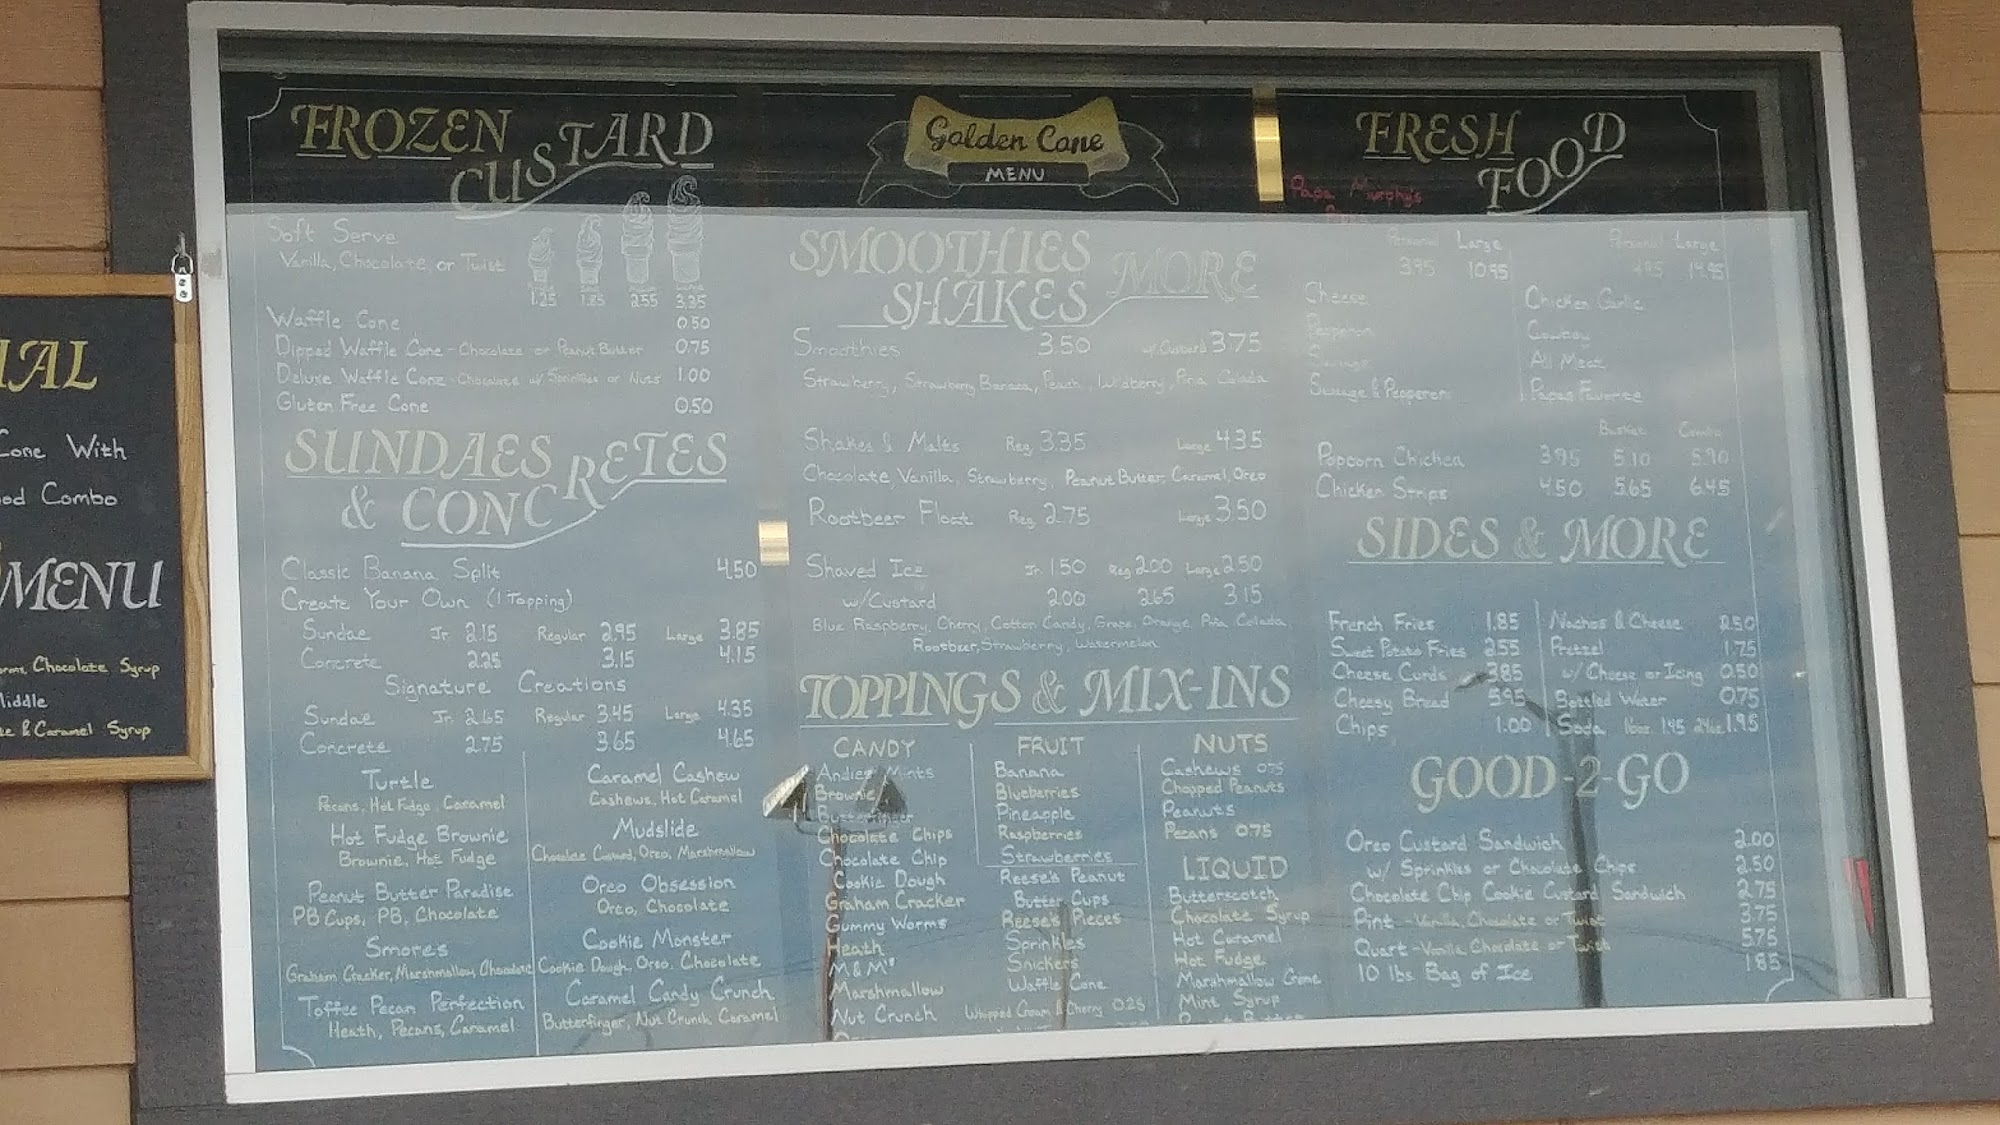 IAL
Cone With
od Combo
MENU
Chocolate Syrup
Middle
& Caramel Syrup
FROZEN
CUSTARD
Soft Serve
Vanilla, Chocolate, or Twist
1.25 1.85 2.55 3.35
Waffle Cone 0.50
Dipped Waffle Cone - Chocolate or Peanut Butter 0.75
Deluxe Waffle Cone - Chocolate w/ Sprinkles or Nuts 1.00
Gluten Free Cone 0.50
SUNDAES
& CONCRETES
Classic Banana Split 4.50
Create Your Own (1 Topping)
Sundae Jr. 2.15 Regular 2.95 Large 3.85
Concrete 2.25 3.15 4.15
Signature Creations
Sundae Jr. 2.65 Regular 3.45 Large 4.35
Concrete 2.75 3.65 4.65
Turtle
Pecans, Hot Fudge, Caramel
Hot Fudge Brownie
Brownie, Hot Fudge
Peanut Butter Paradise
PB Cups, PB, Chocolate
Smores
Graham Cracker, Marshmallow, Chocolate
Toffee Pecan Perfection
Heath, Pecans, Caramel
Caramel Cashew
Cashews, Hot Caramel
Mudslide
Chocolate Custard, Oreo, Marshmallow
Oreo Obsession
Oreo, Chocolate
Cookie Monster
Cookie Dough, Oreo, Chocolate
Caramel Candy Crunch
Butterfinger, Nut Crunch, Caramel
Golden Cone
MENU
SMOOTHIES
SHAKES MORE
Smoothies 3.50 w/ Custard 3.75
Strawberry, Strawberry Banana, Peach, Wildberry, Pina Colada
Shakes & Malts Reg. 3.35 Large 4.35
Chocolate, Vanilla, Strawberry, Peanut Butter, Caramel, Oreo
Rootbeer Float Reg. 2.75 Large 3.50
Shaved Ice Jr. 1.50 Reg 2.00 Large 2.50
w/Custard 2.00 2.65 3.15
Blue Raspberry, Cherry, Cotton Candy, Grape, Orange, Pina Colada,
Rootbeer, Strawberry, Watermelon
TOPPINGS & MIX-INS
CANDY
Andies Mints
Brownie
Butterfinger
Chocolate Chips
Chocolate Chip
Cookie Dough
Graham Cracker
Gummy Worms
Heath
M&M's
Marshmallow
Nut Crunch
FRUIT
Banana
Blueberries
Pineapple
Raspberries
Strawberries
Reese's Peanut
Butter Cups
Reese's Pieces
Sprinkles
Snickers
Waffle Cone
Whipped Cream & Cherry 0.25
NUTS
Cashews 0.75
Chopped Peanuts
Peanuts
Pecans 0.75
LIQUID
Butterscotch
Chocolate Syrup
Hot Caramel
Hot Fudge
Marshmallow Creme
Mint Syrup
FRESH
FOOD
Papa Murphy's
Personal Large
3.95 10.95
Cheese
Pepperoni
Sausage
Sausage & Pepperoni
Personal Large
4.95 14.95
Chicken Garlic
Cowboy
All Meat
Papas Favorite
Basket Combo
Popcorn Chicken 3.95 5.10 5.90
Chicken Strips 4.50 5.65 6.45
SIDES & MORE
French Fries 1.85
Sweet Potato Fries 2.55
Cheese Curds 3.85
Cheesy Bread 5.95
Chips 1.00
Nachos & Cheese 2.50
Pretzel 1.75
w/ Cheese or Icing 0.50
Bottled Water 0.75
Soda 16oz. 1.45 24oz. 1.95
GOOD-2-GO
Oreo Custard Sandwich 2.00
w/ Sprinkles or Chocolate Chips 2.50
Chocolate Chip Cookie Custard Sandwich 2.75
Pint - Vanilla, Chocolate or Twist 3.75
Quart - Vanilla, Chocolate or Twist 5.75
10 lbs Bag of Ice 1.85